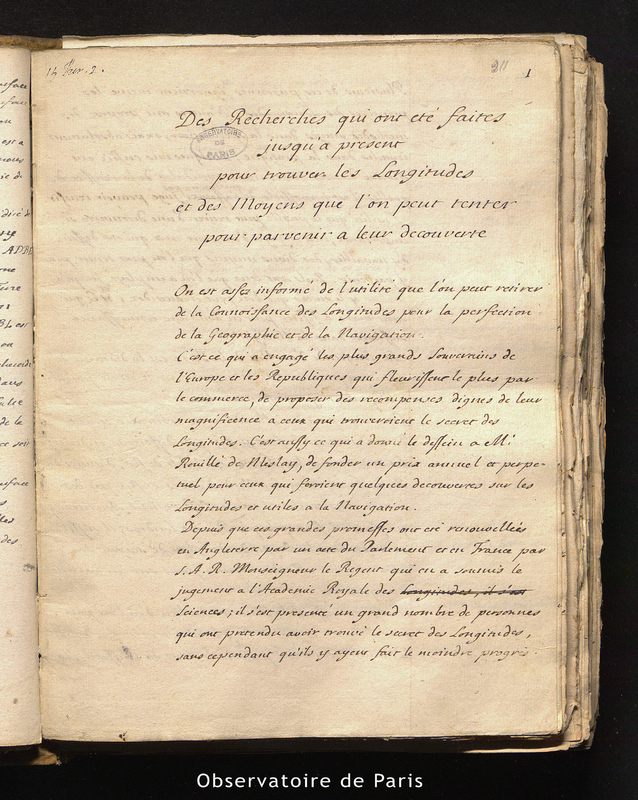 13 Ther. 2.
311
1
Des Recherches qui ont eté faites
jusqu'a present
pour trouver les Longitudes
et des Moyens que l'on peut tenter
pour parvenir a leur decouverte
OBSERVATOIRE
DE
PARIS
On est assez informé de l'utilité que l'on peut retirer
de la Connoissance des Longitudes pour la perfection
de la Geographie et de la Navigation.
C'est ce qui a engagé les plus grands Souverains de
l'Europe et les Republiques qui fleurissent le plus par
le commerce, de proposer des recompenses dignes de leur
magnificence a ceux qui trouveroient le secret des
Longitudes. C'est aussy ce qui a donné le dessein a Mr.
Rouillé de Meslay, de fonder un prix annuel et perpe-
tuel pour ceux qui feroient quelques decouvertes sur les
Longitudes et utiles a la Navigation.
Depuis que ces grandes promesses ont eté renouvellées
en Angleterre par un acte du Parlement et en France par
S. A. R. Monseigneur le Regent qui en a soumis le
jugement a l'Academie Royale des Longitudes, il s'est
Sciences; il s'est presenté un grand nombre de personnes
qui ont pretendu avoir trouvé le secret des Longitudes,
sans cependant qu'ils y ayent fait le moindre progrès.
Observatoire de Paris